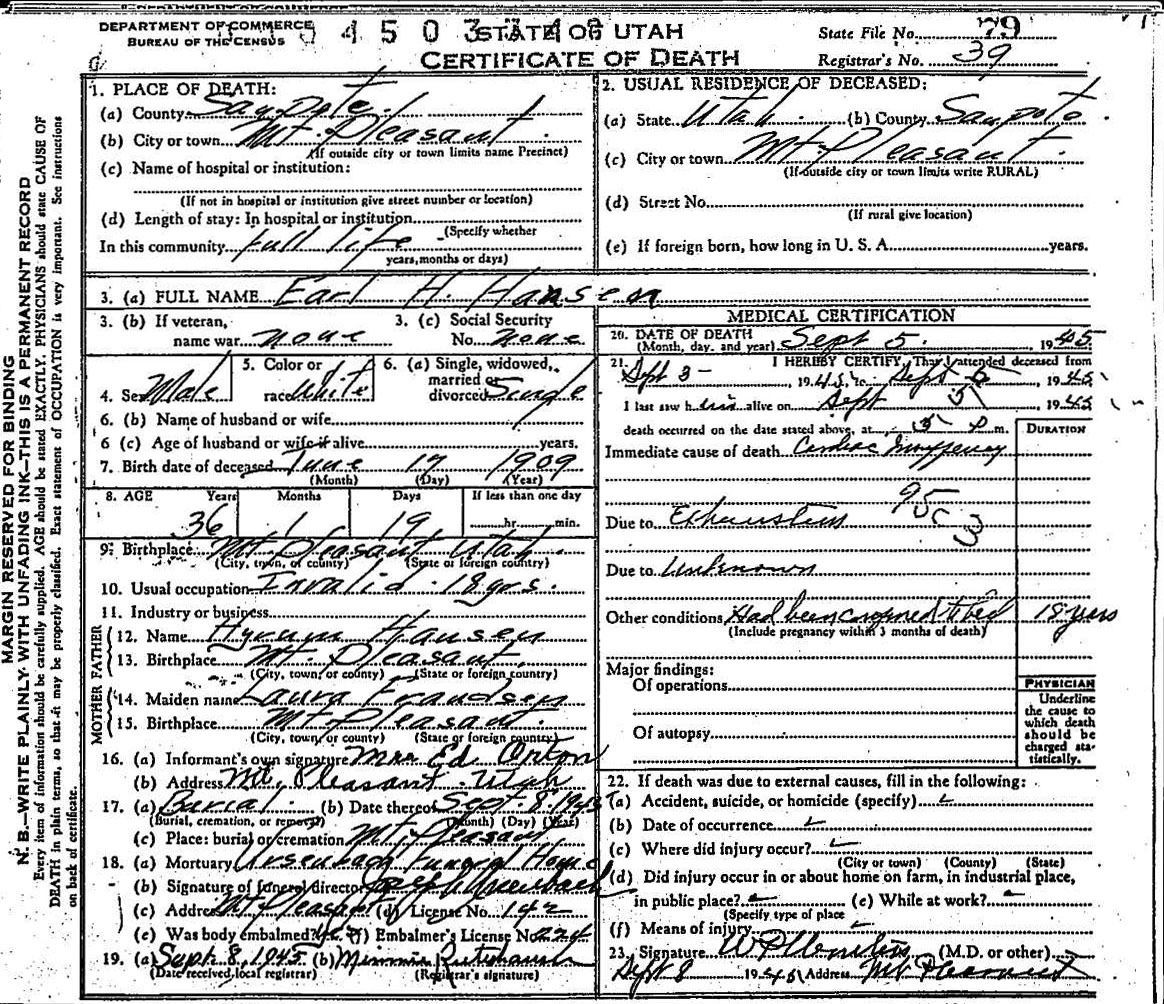 DEPARTMENT OF COMMERCE
BUREAU OF THE CENSUS
STATE OF UTAH
CERTIFICATE OF DEATH
State File No. 79
Registrar's No. 39
MARGIN RESERVED FOR BINDING
N. B.—WRITE PLAINLY WITH UNFADING INK—THIS IS A PERMANENT RECORD
Every item of information should be carefully supplied. AGE should be stated EXACTLY. PHYSICIANS should state CAUSE OF
DEATH in plain terms, so that it may be properly classified. Exact statement of OCCUPATION is very important. See instructions
on back of certificate.
1. PLACE OF DEATH:
(a) County Sanpete
(b) City or town Mt. Pleasant
(If outside city or town limits name Precinct)
(c) Name of hospital or institution:
(If not in hospital or institution give street number or location)
(d) Length of stay: In hospital or institution
(Specify whether
In this community Full life
years, months or days)
2. USUAL RESIDENCE OF DECEASED:
(a) State Utah (b) County Sanpete
(c) City or town Mt Pleasant
(If outside city or town limits write RURAL)
(d) Street No.
(If rural give location)
(e) If foreign born, how long in U. S. A. years.
3. (a) FULL NAME Earl H. Hansen
3. (b) If veteran,
name war none
3. (c) Social Security
No. None
4. Sex Male
5. Color or
race White
6. (a) Single, widowed,
married or
divorced Single
6. (b) Name of husband or wife
6 (c) Age of husband or wife if alive years.
7. Birth date of deceased June 17 1909
(Month) (Day) (Year)
8. AGE Years Months Days If less than one day
36 1 19 hr. min.
9. Birthplace Mt Pleasant Utah
(City, town, or county) (State or foreign country)
10. Usual occupation Invalid 18 yrs.
11. Industry or business
FATHER
12. Name Hyrum Hansen
13. Birthplace Mt. Pleasant
(City, town, or county) (State or foreign country)
MOTHER
14. Maiden name Laura Frandsen
15. Birthplace Mt Pleasant
(City, town, or county) (State or foreign country)
16. (a) Informant's own signature Mrs Ed Orton
(b) Address Mt, Pleasant Utah
17. (a) Burial (b) Date thereof Sept. 8, 1945
(Burial, cremation, or removal) (Month) (Day) (Year)
(c) Place: burial or cremation Mt Pleasant
18. (a) Mortuary Ursenbach Funeral Home
(b) Signature of funeral director Joseph Ursenbach
(c) Address Mt Pleasant (d) License No. 142
(e) Was body embalmed? yes (f) Embalmer's License No. 224
19. (a) Sept. 8, 1945 (b) Minnie
(Date received local registrar) (Registrar's signature)
MEDICAL CERTIFICATION
20. DATE OF DEATH
(Month, day, and year) Sept 5, 1945
21. I HEREBY CERTIFY, That I attended deceased from
Sept 3 - , 1945, to Sept 5 1945
I last saw him alive on Sept 5 1945
death occurred on the date stated above, at 5 P m.
DURATION
Immediate cause of death Cardiac
95c
3
Due to Exhaustion
Due to Unknown
Other conditions Had been confined to bed 18 years
(Include pregnancy within 3 months of death)
Major findings:
Of operations
Of autopsy
PHYSICIAN
Underline
the cause to
which death
should be
charged sta-
tistically.
22. If death was due to external causes, fill in the following:
(a) Accident, suicide, or homicide (specify)
(b) Date of occurrence
(c) Where did injury occur?
(City or town) (County) (State)
(d) Did injury occur in or about home on farm, in industrial place,
in public place? (e) While at work?
(Specify type of place
(f) Means of injury
23. Signature (M.D. or other)
Sept 8 1945 Address Mt Pleasant